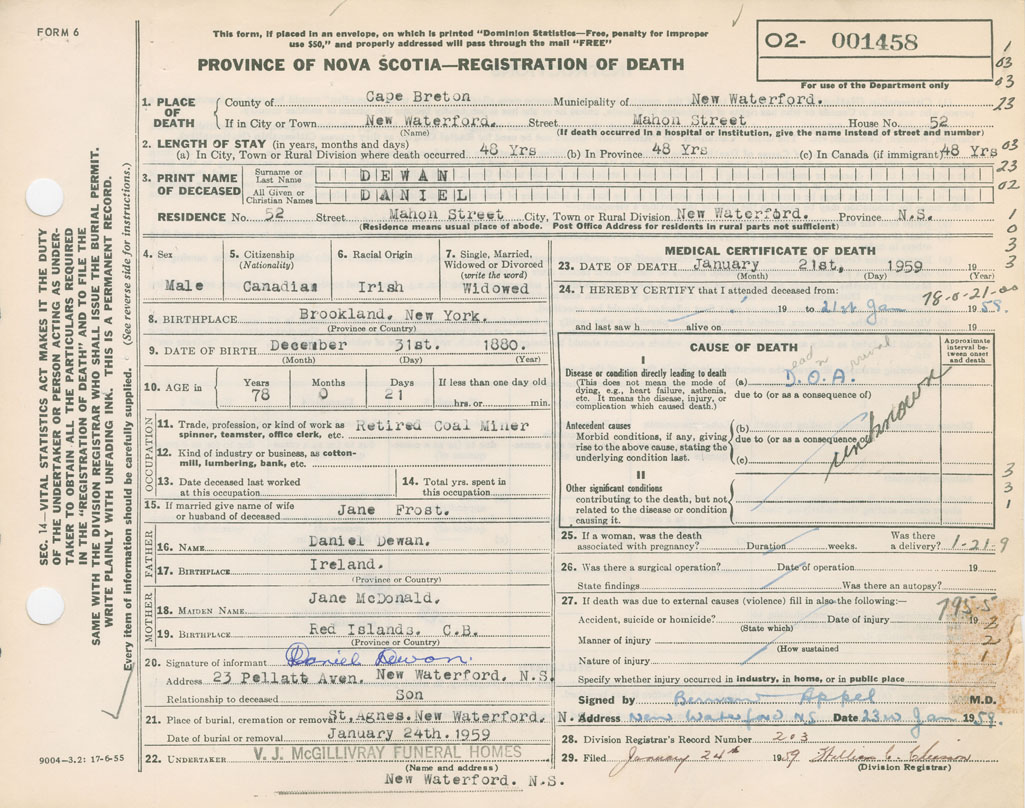 FORM 6
This form, if placed in an envelope, on which is printed "Dominion Statistics—Free, penalty for improper
use $50," and properly addressed will pass through the mail "FREE"
02- 001458
For use of the Department only
PROVINCE OF NOVA SCOTIA—REGISTRATION OF DEATH
1. PLACE OF DEATH County of Cape Breton Municipality of New Waterford.
If in City or Town New Waterford. Street Mahon Street House No. 52
(Name) (If death occurred in a hospital or institution, give the name instead of street and number)
2. LENGTH OF STAY (in years, months and days)
(a) In City, Town or Rural Division where death occurred 48 Yrs (b) In Province 48 Yrs (c) In Canada (if immigrant) 48 Yrs
3. PRINT NAME OF DECEASED Surname or Last Name DEWAN
All Given or Christian Names DANIEL
RESIDENCE No. 52 Street Mahon Street City, Town or Rural Division New Waterford. Province N.S.
(Residence means usual place of abode. Post Office Address for residents in rural parts not sufficient)
1
03
03
23
03
23
02
1
0
3
3
4. Sex
Male
5. Citizenship
(Nationality)
Canadian
6. Racial Origin
Irish
7. Single, Married,
Widowed or Divorced
(write the word)
Widowed
8. BIRTHPLACE Brookland, New York.
(Province or Country)
9. DATE OF BIRTH December 31st. 1880.
(Month) (Day) (Year)
10. AGE in Years Months Days If less than one day old
78 0 21 hrs. or min.
OCCUPATION
11. Trade, profession, or kind of work as
spinner, teamster, office clerk, etc. Retired Coal Miner
12. Kind of industry or business, as cotton-
mill, lumbering, bank, etc.
13. Date deceased last worked
at this occupation
14. Total yrs. spent in
this occupation
15. If married give name of wife
or husband of deceased Jane Frost.
FATHER
16. NAME Daniel Dewan.
17. BIRTHPLACE Ireland.
(Province or Country)
MOTHER
18. MAIDEN NAME Jane McDonald.
19. BIRTHPLACE Red Islands. C.B.
(Province or Country)
20. Signature of informant Daniel Dewan.
Address 23 Pellatt Aven. New Waterford, N.S.
Relationship to deceased Son
21. Place of burial, cremation or removal St. Agnes. New Waterford.
Date of burial or removal January 24th.1959
22. UNDERTAKER V. J. McGILLIVRAY FUNERAL HOMES
(Name and address)
New Waterford. N.S.
MEDICAL CERTIFICATE OF DEATH
23. DATE OF DEATH January 21st. 1959 19
(Month) (Day) (Year)
24. I HEREBY CERTIFY that I attended deceased from:
78-0-21-00
19 to 21st Jan 1959.
and last saw h alive on 19
CAUSE OF DEATH
Approximate
interval be-
tween onset
and death
I
Disease or condition directly leading to death
(This does not mean the mode of
dying, e.g., heart failure, asthenia,
etc. It means the disease, injury, or
complication which caused death.)
(a) D.O.A.
due to (or as a consequence of)
Antecedent causes
Morbid conditions, if any, giving
rise to the above cause, stating the
underlying condition last.
(b)
due to (or as a consequence
(c)
unknown
II
Other significant conditions
contributing to the death, but not
related to the disease or condition
causing it.
3
3
1
25. If a woman, was the death
associated with pregnancy? Duration weeks. Was there
a delivery?
1-21-9
26. Was there a surgical operation? Date of operation 19
State findings Was there an autopsy?
27. If death was due to external causes (violence) fill in also the following:—
795-5
Accident, suicide or homicide? Date of injury 19
(State which)
Manner of injury
(How sustained
Nature of injury
2
2
1
Specify whether injury occurred in industry, in home, or in public place
Signed by Bernard Appel M.D.
N. Address New Waterford NS Date 23rd Jan 1959.
28. Division Registrar's Record Number 203
29. Filed January 24th 1959
(Division Registrar)
SEC. 14—VITAL STATISTICS ACT MAKES IT THE DUTY
OF THE UNDERTAKER OR PERSON ACTING AS UNDER-
TAKER TO OBTAIN ALL THE PARTICULARS REQUIRED
IN THE "REGISTRATION OF DEATH" AND TO FILE THE
SAME WITH THE DIVISION REGISTRAR WHO SHALL ISSUE THE BURIAL PERMIT.
WRITE PLAINLY WITH UNFADING INK. THIS IS A PERMANENT RECORD.
Every item of information should be carefully supplied. (See reverse side for instructions.)
9004-3.2: 17-6-55